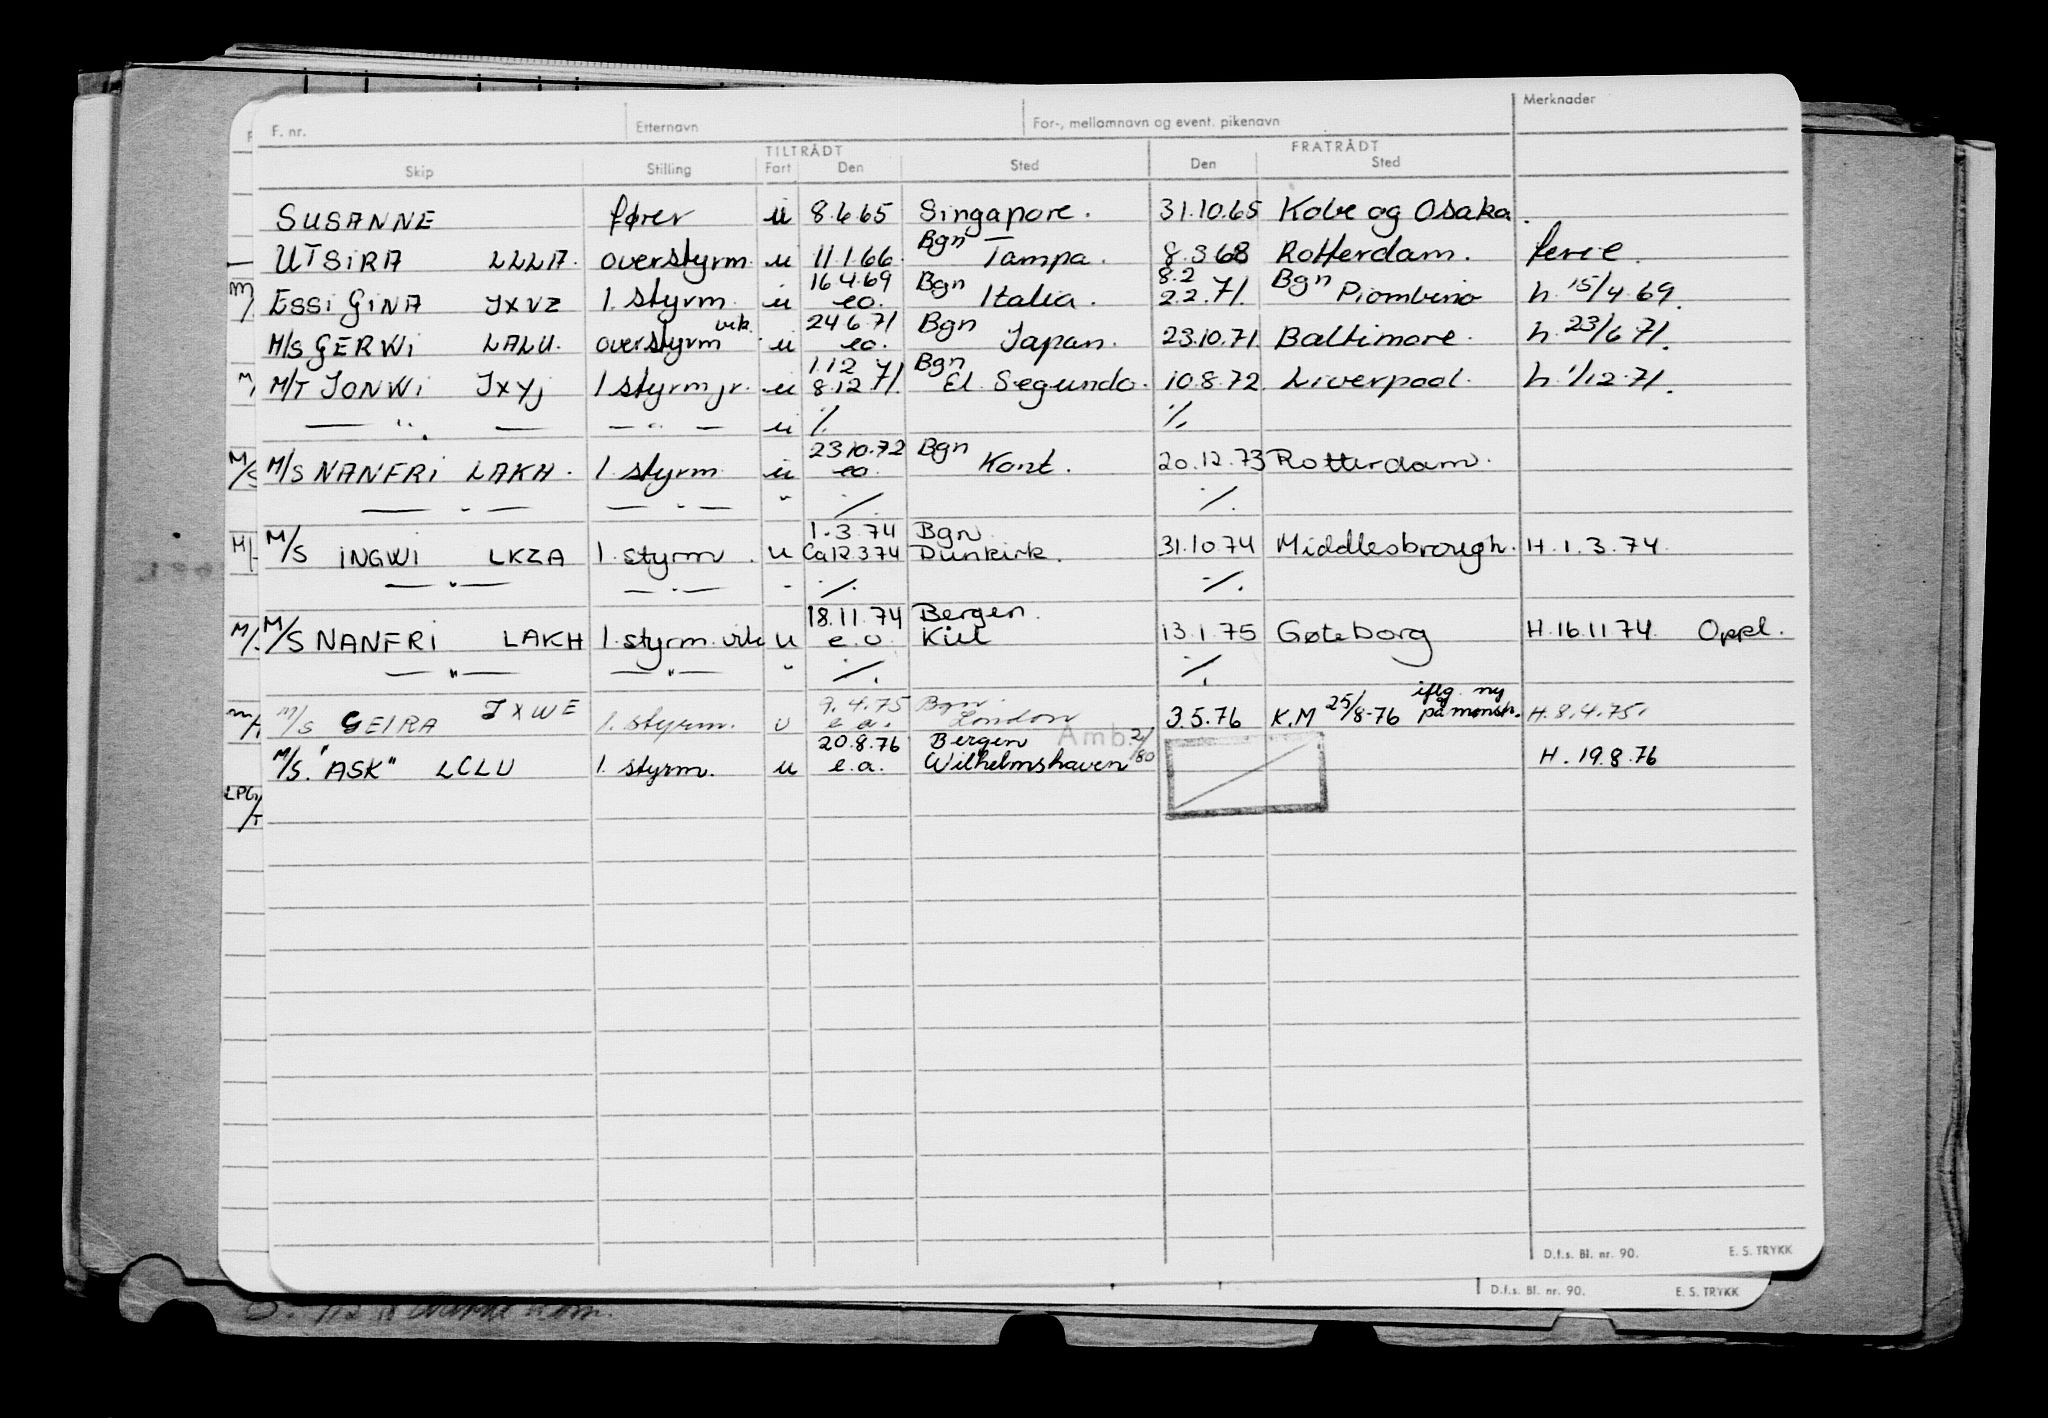 F. nr. Etternavn For-, mellomnavn og event. pikenavn Merknader
TILTRÅDT FRATRÅDT
Skip Stilling Fart Den Sted Den Sted
SUSANNE fører u 8.6.65 Singapore. 31.10.65 Kobe og Osaka.
UTSIRA LLLA. overstyrm. u 11.1.66. Bgn Tampa. 8.3.68 Rotterdam. ferie.
16.4.69 Bgn 8.2 Bgn
ESSI GINA JXVZ 1. styrm. u eo. Italia. 22.71. Piombino h. 15/4.69.
vik. 24.6.71 Bgn
M/S GERWI LALU. overstyrm u eo. Japan. 23.10.71 Baltimore. h. 23/6 71.
1.12 71. Bgn
M/T JONWI JXYJ 1 styrm jr. u 8.12 El Segundo. 10.8.72. Liverpool. h. 1/12.71.
— " — — " — u ./. ./.
23.10.72 Bgn
M/S NANFRI LAKH. 1. styrm. u eo. Kont. 20.12.73 Rotterdam.
— " — — " — " ./. ./.
1.3.74 Bgn.
M/S INGWI LKZA 1. styrm. u Ca 12.3.74 Dunkirk. 31.10.74 Middlesbrough. H. 1.3.74.
— " — — " — " ./. ./.
18.11.74 Bergen.
M/S NANFRI LAKH 1. styrm. vik u e.o Kiel 13.1.75 Gøteborg H.16.11.74. Oppl.
— " — — " — " ./. ./.
JXWE 7.4.75 Bgn. iflg. ny
M/S GEIRA 1. styrm. u e.a. London 3.5.76 K.M 25/8-76 på mønstr. H.8.4.75.
20.8.76 Bergen Amb. 2/80
M/S. "ASK" LCLU 1. styrm. u e.a. Wilhelmshaven H. 19.8.76
D.f.s. Bl. nr. 90. E. S. TRYKK
D.f.s. Bl. nr. 90. E. S. TRYKK